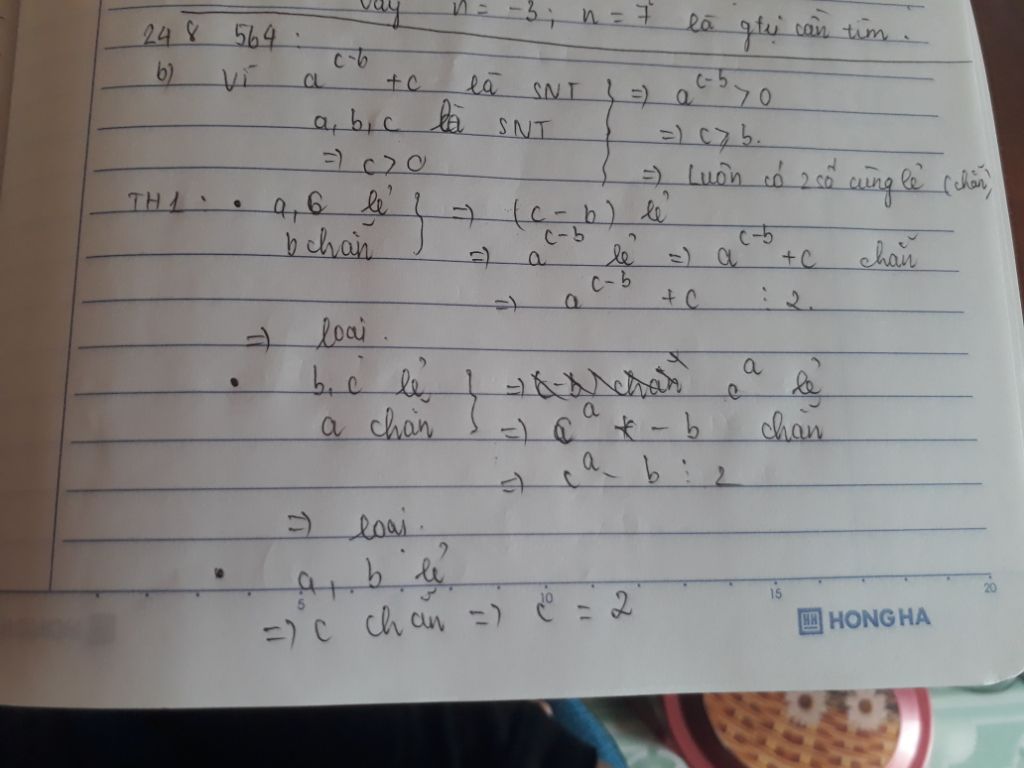 Vậy n = -3 ; n = 7 là gtrị cần tìm.
248 564 :
b) Vì a^{c-b} + c là SNT } => a^{c-b} > 0
a, b, c là SNT => c ≥ b.
=> c > 0 => Luôn có 2 số cùng lẻ (chẵn)
TH1 : • a, c lẻ } => (c - b) lẻ
b chẵn => a^{c-b} lẻ => a^{c-b} + c chẵn
=> a^{c-b} + c ⋮ 2.
=> loại.
• b, c lẻ } => c^a lẻ
a chẵn => c^a - b chẵn
=> c^a - b ⋮ 2
=> loại.
• a, b lẻ
=> c chẵn => c = 2
5 10 15 20
HH HONG HA